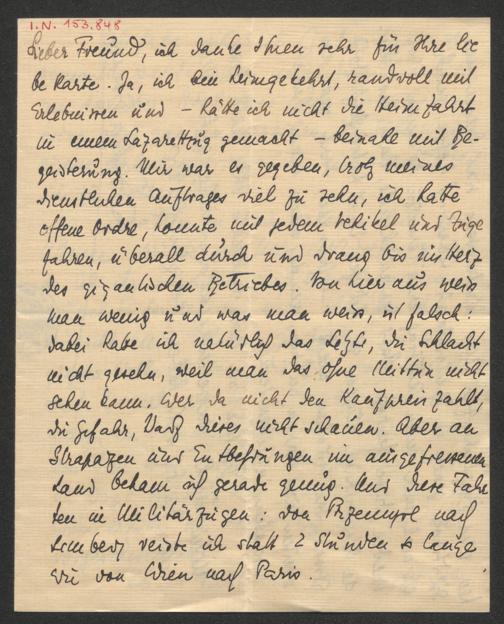 I.N. 153.848
Lieber Freund, ich danke Ihnen sehr für Ihre lie
be Karte. Ja, ich bin heimgekehrt, randvoll mit
Erlebnissen und – hätte ich nicht die Heimfahrt
in einem Lazarettzug gemacht – beinahe mit Be-
geisterung. Mir war es gegeben, trotz meines
dienstlichen Auftrages viel zu sehn, ich hatte
offene Ordre, konnte mit jedem Vehikel und Zuge
fahren, überall durch und drang bis ins Herz
des gigantischen Betriebes. Von hier aus weiss
man wenig und was man weiss, ist falsch:
dabei habe ich natürlich das Letzte, die Schlacht
nicht gesehn, weil man das ohne Mittun nicht
sehen kann. Wer da nicht den Kaufpreis zahlt,
die Gefahr, darf dieses nicht schauen. Aber an
Strapazen und Entbehrungen im ausgefressenen
Land bekam ich gerade genug. Und diese Fahr
ten in Militärzügen: von Przemysl nach
Lemberg reiste ich statt 2 Stunden so lange
wie von Wien nach Paris.